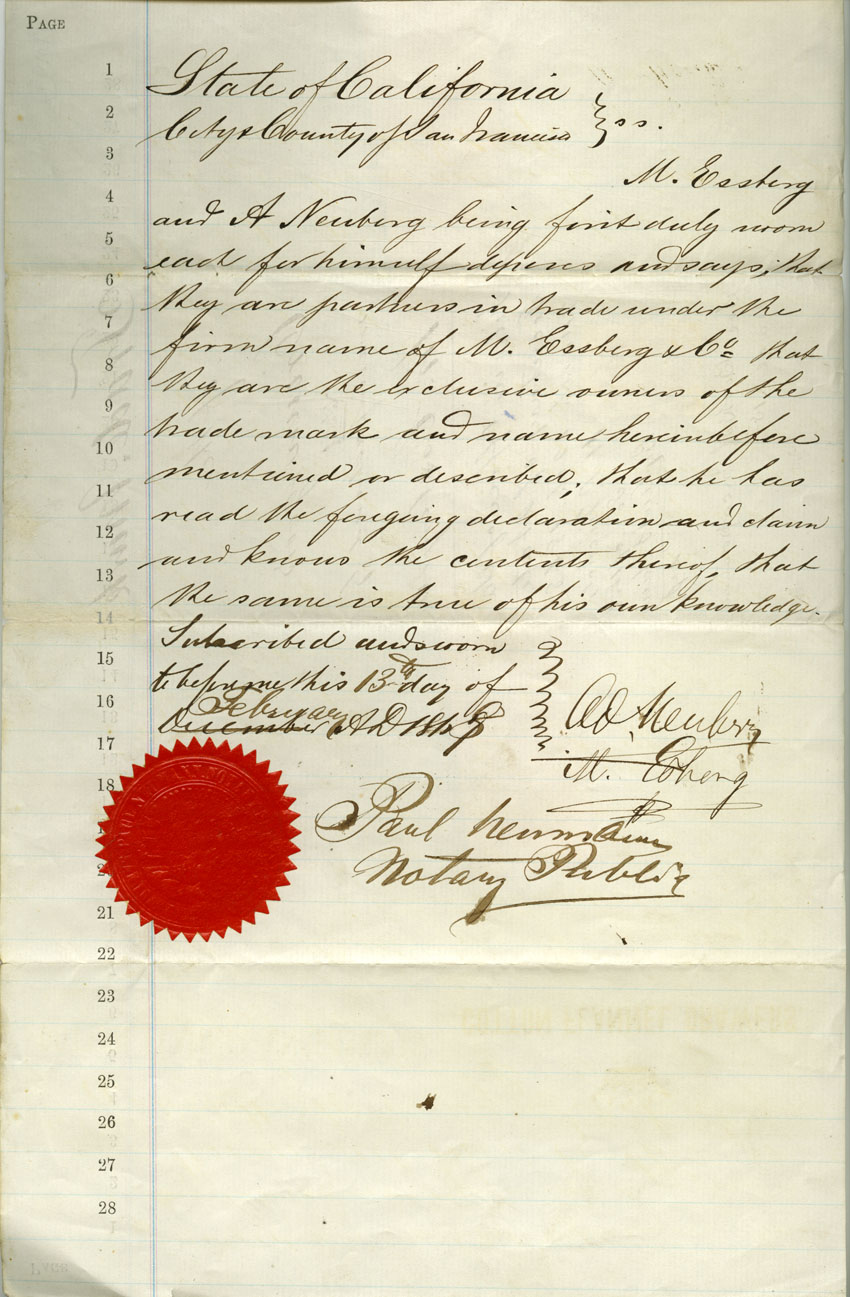 PAGE
1
2
3
4
5
6
7
8
9
10
11
12
13
14
15
16
17
18
21
22
23
24
25
26
27
28
State of California
City & County of San Francisco } ss.
M. Essberg
and A Neuberg being first duly sworn
each for himself deposes and says; that
they are partners in trade under the
firm name of M. Essberg & Co. that
they are the exclusive owners of the
trade mark and name hereinbefore
mentioned or described; that he has
read the foregoing declaration and claim
and knows the contents thereof, that
the same is true of his own knowledge.
Subscribed and sworn
to before me this 13th day of
February
December A D 186
Ad. Neuberg
M. Essberg
Paul Neumann
Notary Public